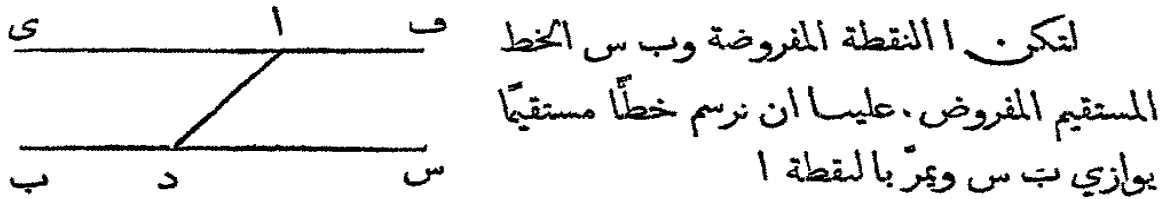 لتكن ا النقطة المفروضة وب س الخط
المستقيم المفروض. علينا ان نرسم خطًّا مستقيمًا
يوازي ب س ويمرّ بالنقطة ا
ى ا ف
ب د س